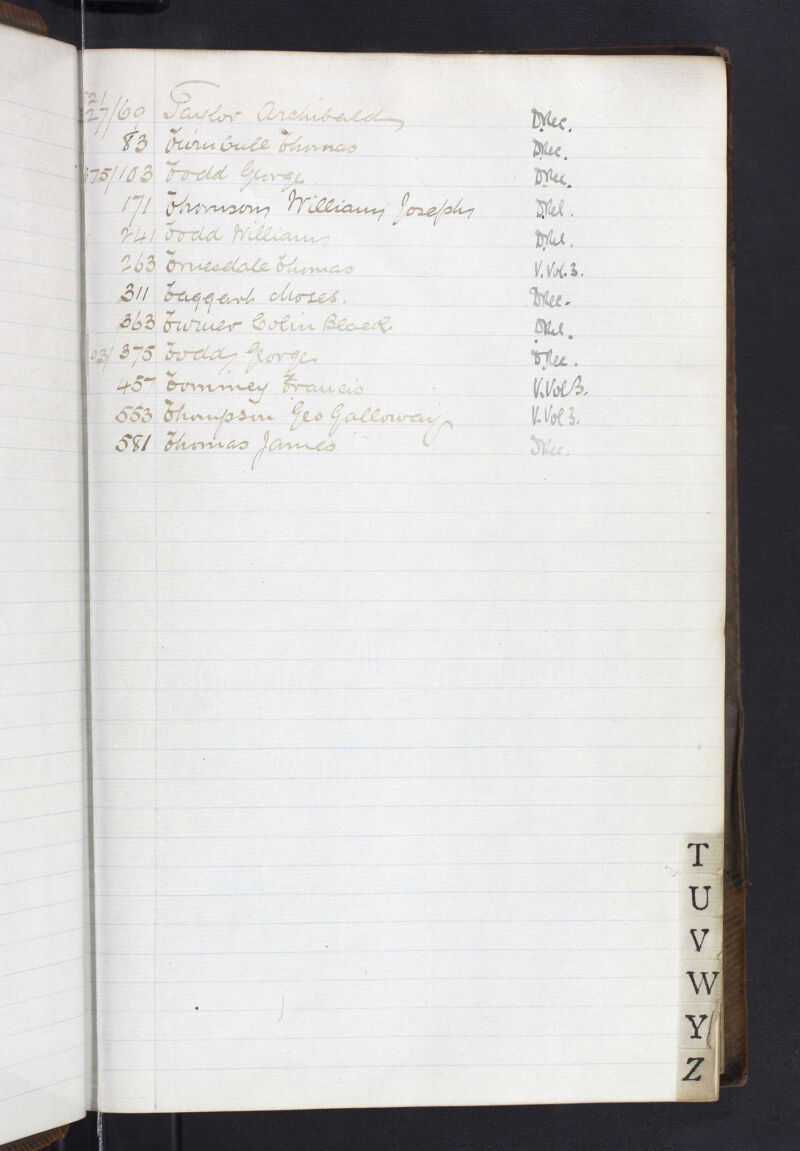 21
27/69 Taylor Archibald D.Rec.
83 Turnbull Thomas D.Rec.
375/103 Todd George D.Rec.
171 Thomson William Joseph D.Rel.
241 Todd William D.Rel.
263 Truesdale Thomas V.Vol.3.
311 Taggart Moses. D.Rec.
363 Turner Colin Black D.Rel.
103/375 Todd, George D.Rec.
457 Tommey Francis V.Vol 3.
553 Thompson Geo Galloway V.Vol 3.
581 Thomas James D.Rec.
T
U
V
W
Y
Z